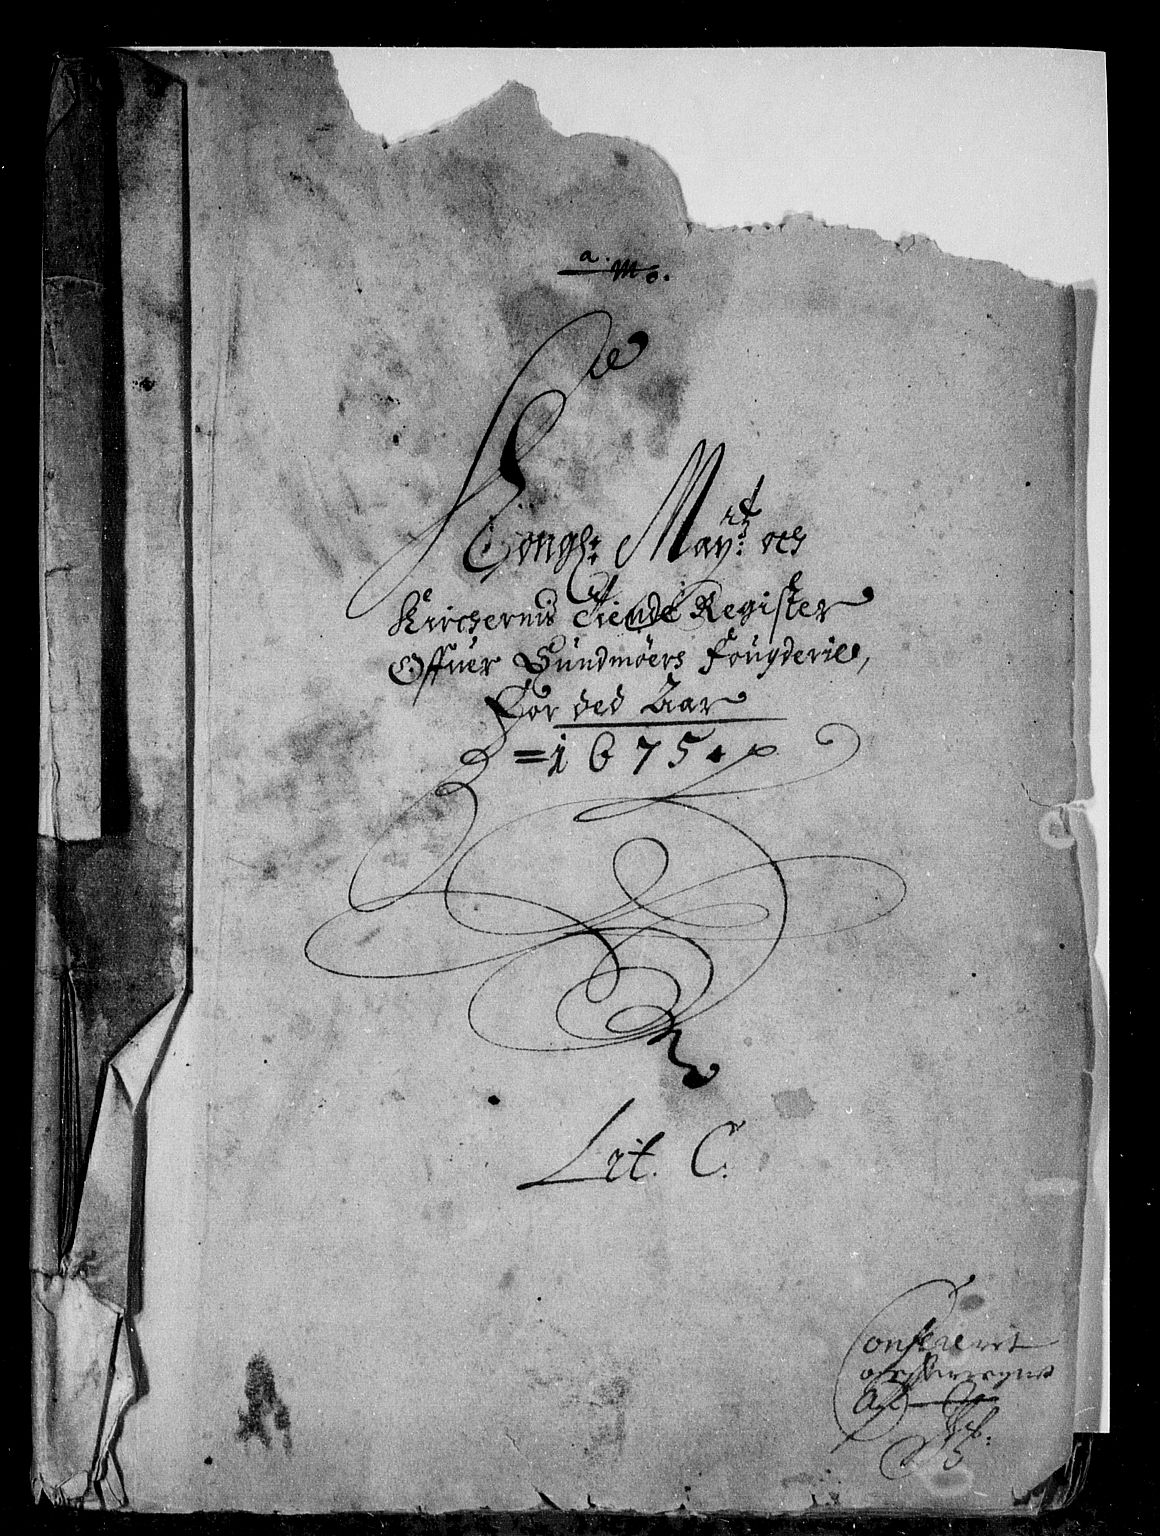 a. m o.
Kongl: Mayttz: och
Kirchernis Tiende Register
Offuer Sundmöers Fougderie,
For ded Aar
=1675.
Lit. C.
Confererit